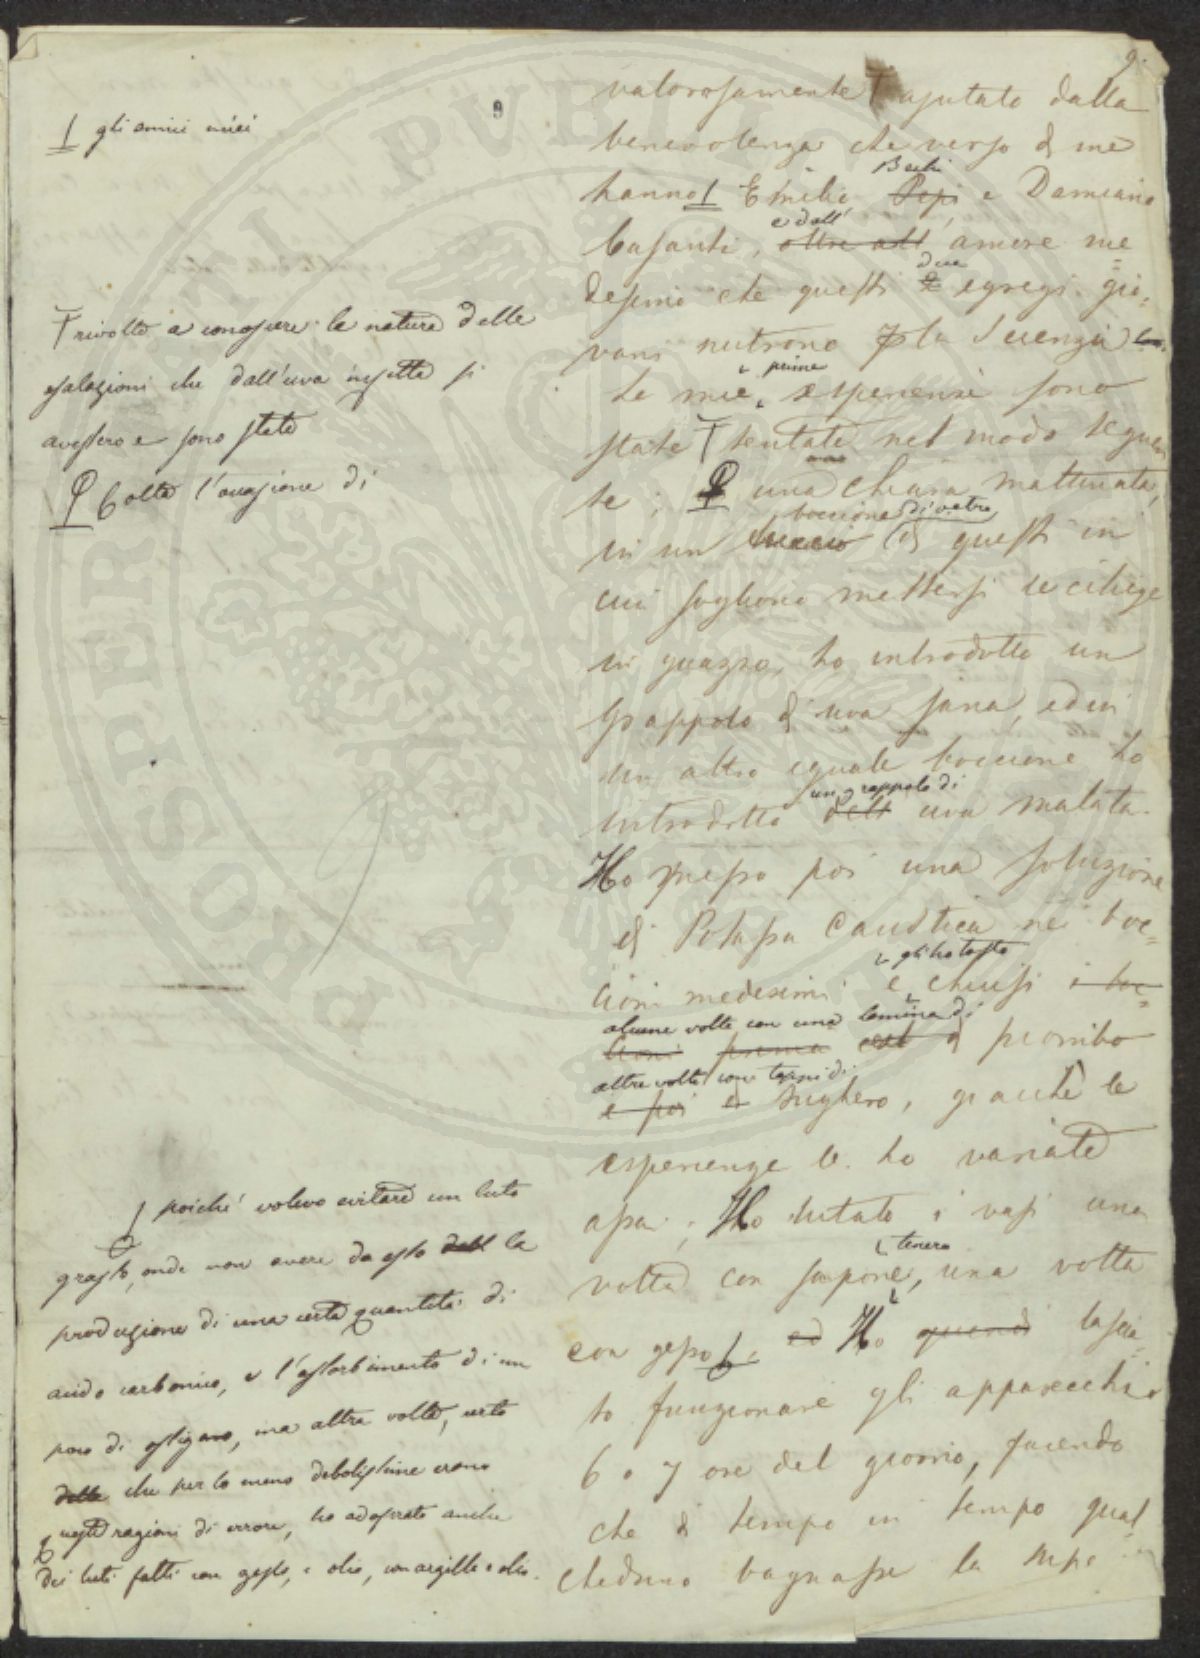 9.
9
valorosamente ajutato dalla
benevolenza che verso di me
Bechi
hanno Emilio Pepi e Damiano
e dall'
Casanti, oltre all' amore me
due
desimo che questi 2 egregi gio=
vani nutrono p la Scienza
prime
Le mie esperienze sono
state T tentate nel modo seguen
te; una chiara mattinata,
boccione di vetro
in un di questi in
cui sogliono mettersi le ciliege
in guazzo, ho introdotto un
grappolo di uva sana, ed in
un altro eguale boccione ho
un grappolo di
introdotto dell uva malata.
Ho messo poi una soluzione
di Potassa Caustica nei boc=
gli ho tosto
cioni medesimi e chiusi i boc=
alcune volte con una lamina di
cioni prima di piombo
altre volte con tappi di
e poi di sughero, giacchè le
esperienze le ho variate
assai; Ho lutato i vasi una
tenero
volta con sapone, una volta
con gesso ed Ho quindi lascia=
to funzionare gli apparecchi
6 o 7 ore del giorno, facendo
che di tempo in tempo qual
cheduno bagnasse la supe
gli amici miei
T rivolte a conoscere la natura delle
esalazioni che dall'uva infetta si
avessero e sono state
Colta l'occasione di
poiché volevo evitare un luto
grasso, onde non avere da esso dell la
produzione di una certa quantità di
acido carbonico, e l'assorbimento di un
poco di ossigeno, ma altre volte, certo
delle che per lo meno debolissime erano
queste ragioni di errore, ho adoprato anche
dei luti fatti con gesso, e olio, con argilla e olio.